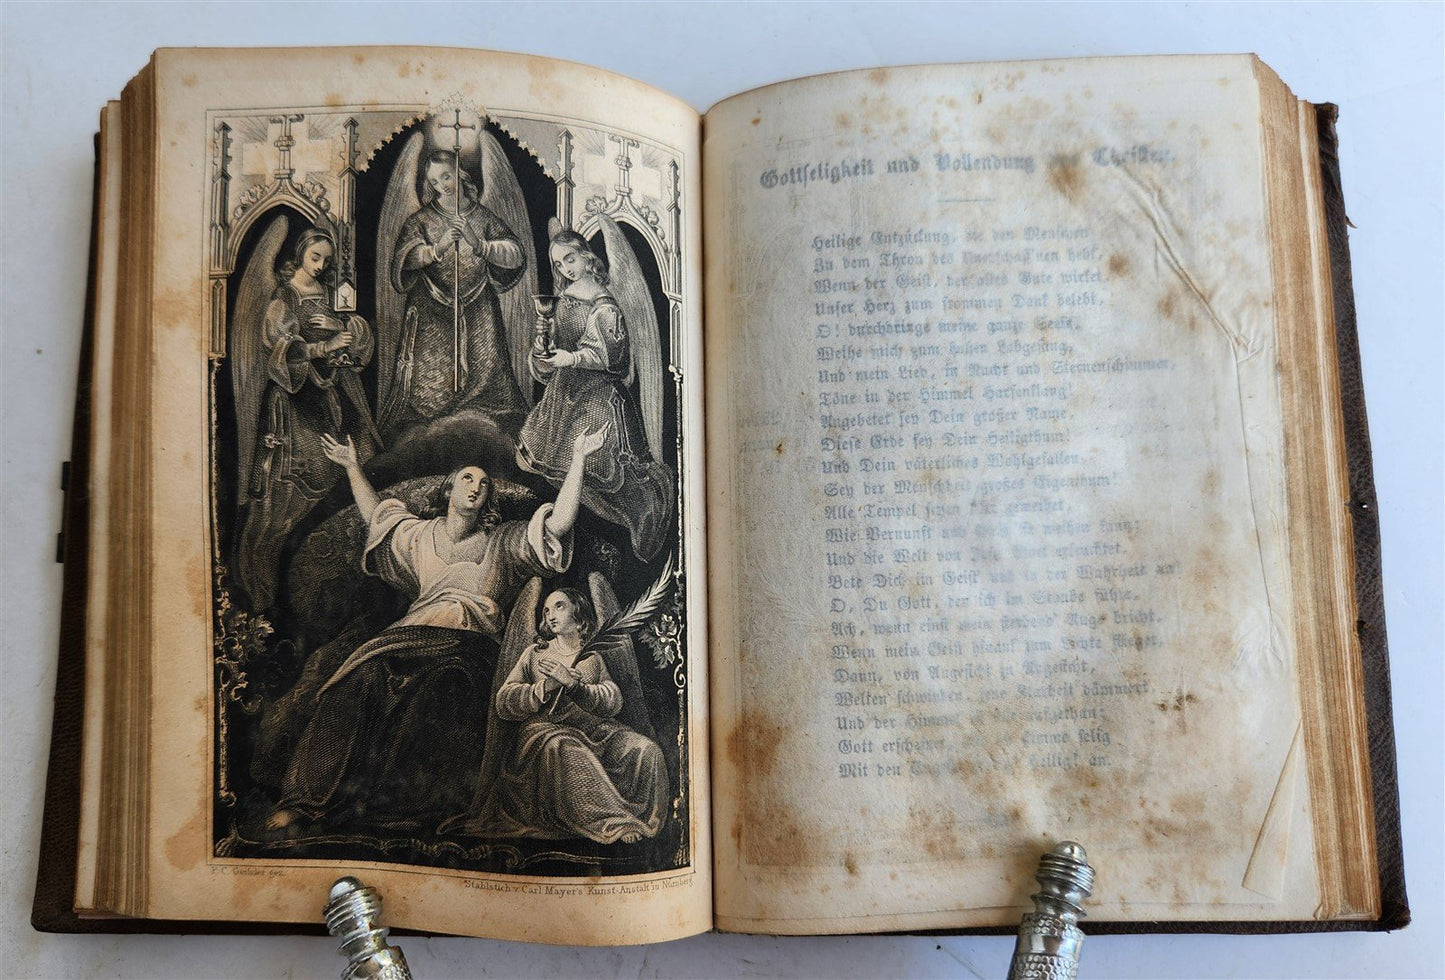 Gez.
Stahlstich v. Carl Mayer's Kunst-Anstalt in Nürnberg
Gottseligkeit und Vollendung Christen.
Heilige Entzückung, den Menschen
Zu dem Thron des hebt,
Wenn der Geist, der alles Gute wirket,
Unser Herz zum frommen Dank belebt,
O! durchdringe meine ganze Seele,
Weihe mich zum hohen Lobgesang,
Und mein Lied, in Nacht und Sternenschimmer,
Töne in der Himmel Harfenklang!
Angebetet sey Dein großer Name,
Diese Erde sey Dein Heiligthum!
Und Dein väterliches Wohlgefallen,
Sey der Menschheit großes Eigenthum!
Alle Tempel seyen geweihet,
Wie Vernunft und
Und die Welt von erleuchtet,
Bete Dich im Geist und in der Wahrheit an!
O, Du Gott, den ich im Staube fühle,
Ach, wenn einst mein sterbend Auge bricht,
Wenn mein Geist hinauf zum Lichte
Dann, von Angesicht zu Angesicht,
Welten schwinden, jene Klarheit dämmert,
Und der Himmel ist aufgethan;
Gott erscheinet, selig
Mit den heiligt an.